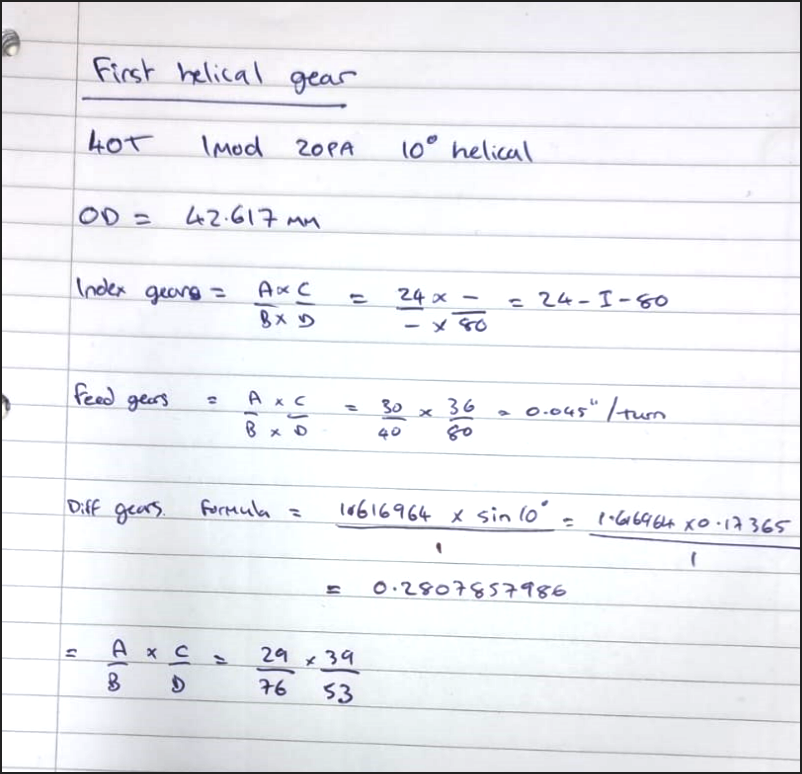 First helical gear
40T 1Mod 20PA 10° helical
OD = 42.617 mm
Index gears = A x C / B x D = 24 x - / - x 80 = 24 - I - 80
Feed gears = A x C / B x D = 30 / 40 x 36 / 80 = 0.045" / turn
Diff gears. Formula = 1.616964 x sin 10° / 1 = 1.616964 x 0.17365 / 1
= 0.2807857986
= A / B x C / D = 29 / 76 x 39 / 53